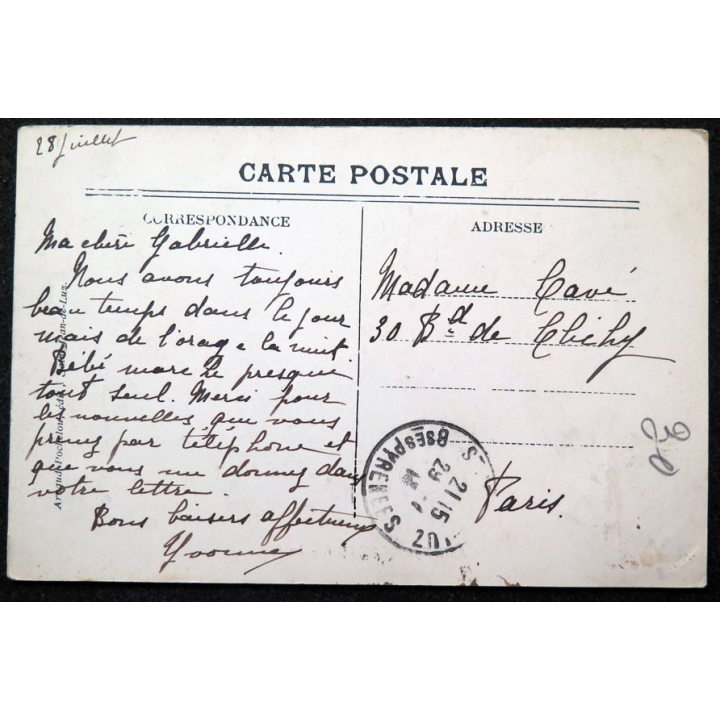 28 juillet
CARTE POSTALE
CORRESPONDANCE
ADRESSE
Ma chère Gabrielle.
Nous avons toujours
beau temps dans le jour
mais de l'orage la nuit.
Bébé marche presque
tout seul. Merci pour
les nouvelles que vous
prenez par téléphone et
que vous me donnez dans
votre lettre.
Bons baisers affectueux
Yvonne
Madame Cavé
30 Bd de Clichy
Paris.
LUZ
BSES PYRENEES
21 15
29